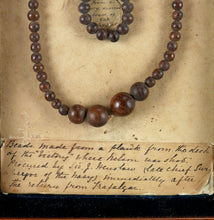 Beads made from a plank from the deck
of the "Victory" where Nelson was shot.
Procured by Sir J. (late chief
of the Navy) immediately after
the return from Trafalgar.